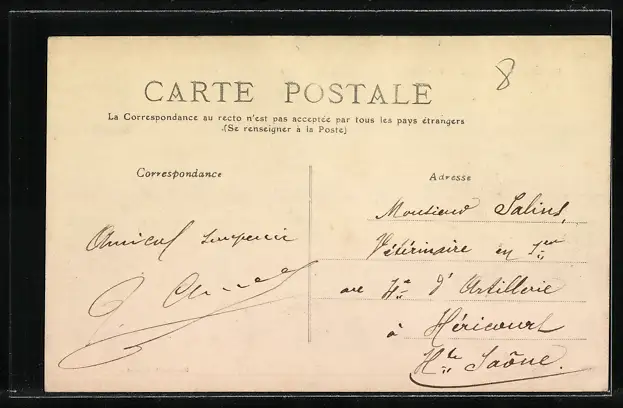 8
CARTE POSTALE
La Correspondance au recto n'est pas acceptée par tous les pays étrangers
(Se renseigner à la Poste)
Correspondance
Adresse
Monsieur Salins,
Vétérinaire en 1er
Amical souvenir
d'Artillerie
à Héricourt
Hte Saône.